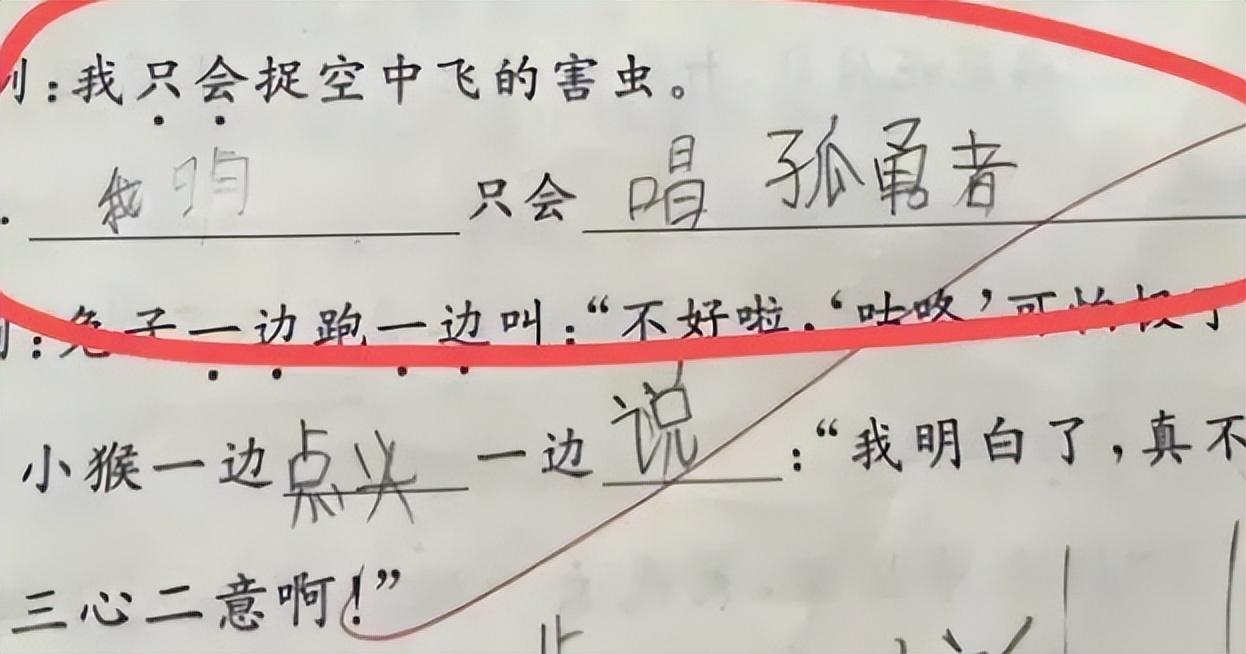 :我只会捉空中飞的害虫。
我 只会 唱 孤勇者
:兔子一边跑一边叫:“不好啦,‘咕咚’可怕极了
小猴一边点头一边说:“我明白了,真不
三心二意啊!”